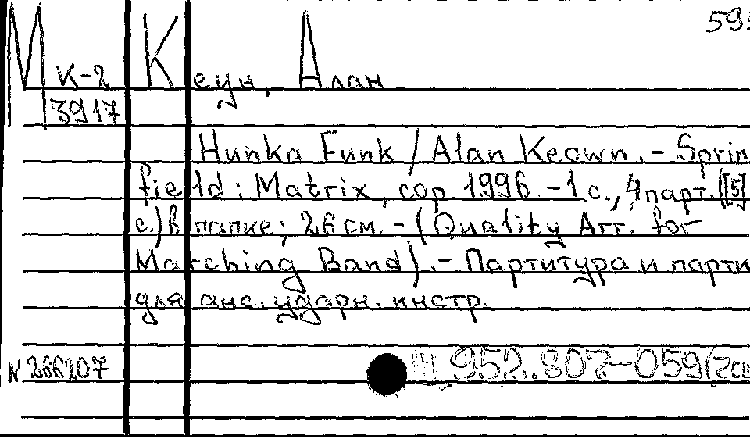 М К-2 Кеун, Алан
3917
Hunka Funk / Alan Keown. - Sprin
field : Matrix, cop. 1996. - 1 с., 4 парт. ([5]
с.) в папке; 26 см. - (Quality Arr. for
Marching Band). - Партитура и парти
для анс. ударн. инстр.
N 266207 952.807-059(2